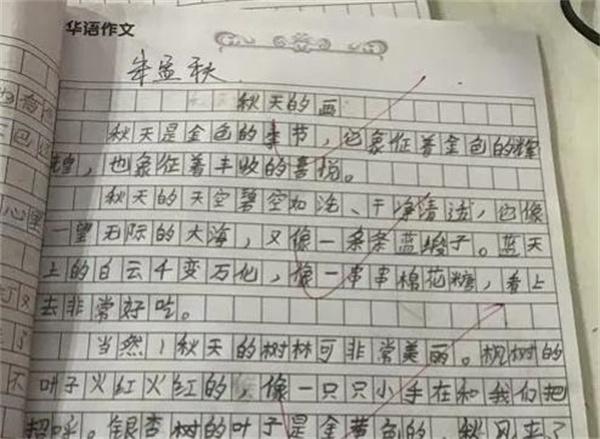 华语作文
牟孟秋
秋天的画
秋天是金色的季节，它象征着金色的辉
煌，也象征着丰收的喜悦。
秋天的天空碧空如洗、干净清透，它像
一望无际的大海，又像一条条蓝缎子。蓝天
上的白云千变万化，像一串串棉花糖，看上
去非常好吃。
当然！秋天的树林可非常美丽。枫树的
叶子火红火红的，像一只只小手在和我们把
招呼。银杏树的叶子是金黄色的，秋风来了